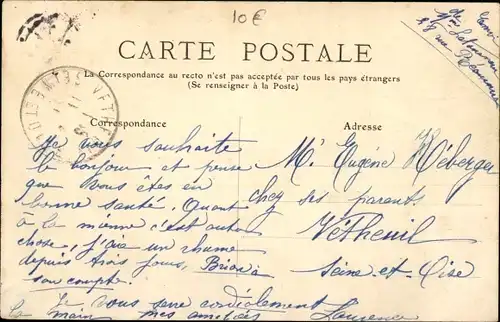 10€
de
18 rue Réaumur
CARTE POSTALE
La Correspondance au recto n'est pas acceptée par tous les pays étrangers
(Se renseigner à la Poste)
Correspondance
Adresse
Je vous souhaite
le bonjour et pense
que vous êtes en
bonne santé. Quant
à la mienne c'est autre
chose, j'ai un rhume
depuis trois jours,
son compte.
Je vous serre cordialement
la main mes amitiés
Laurence
Mr Eugène Héberger
chez ses parents
Vétheuil
Seine-et-Oise